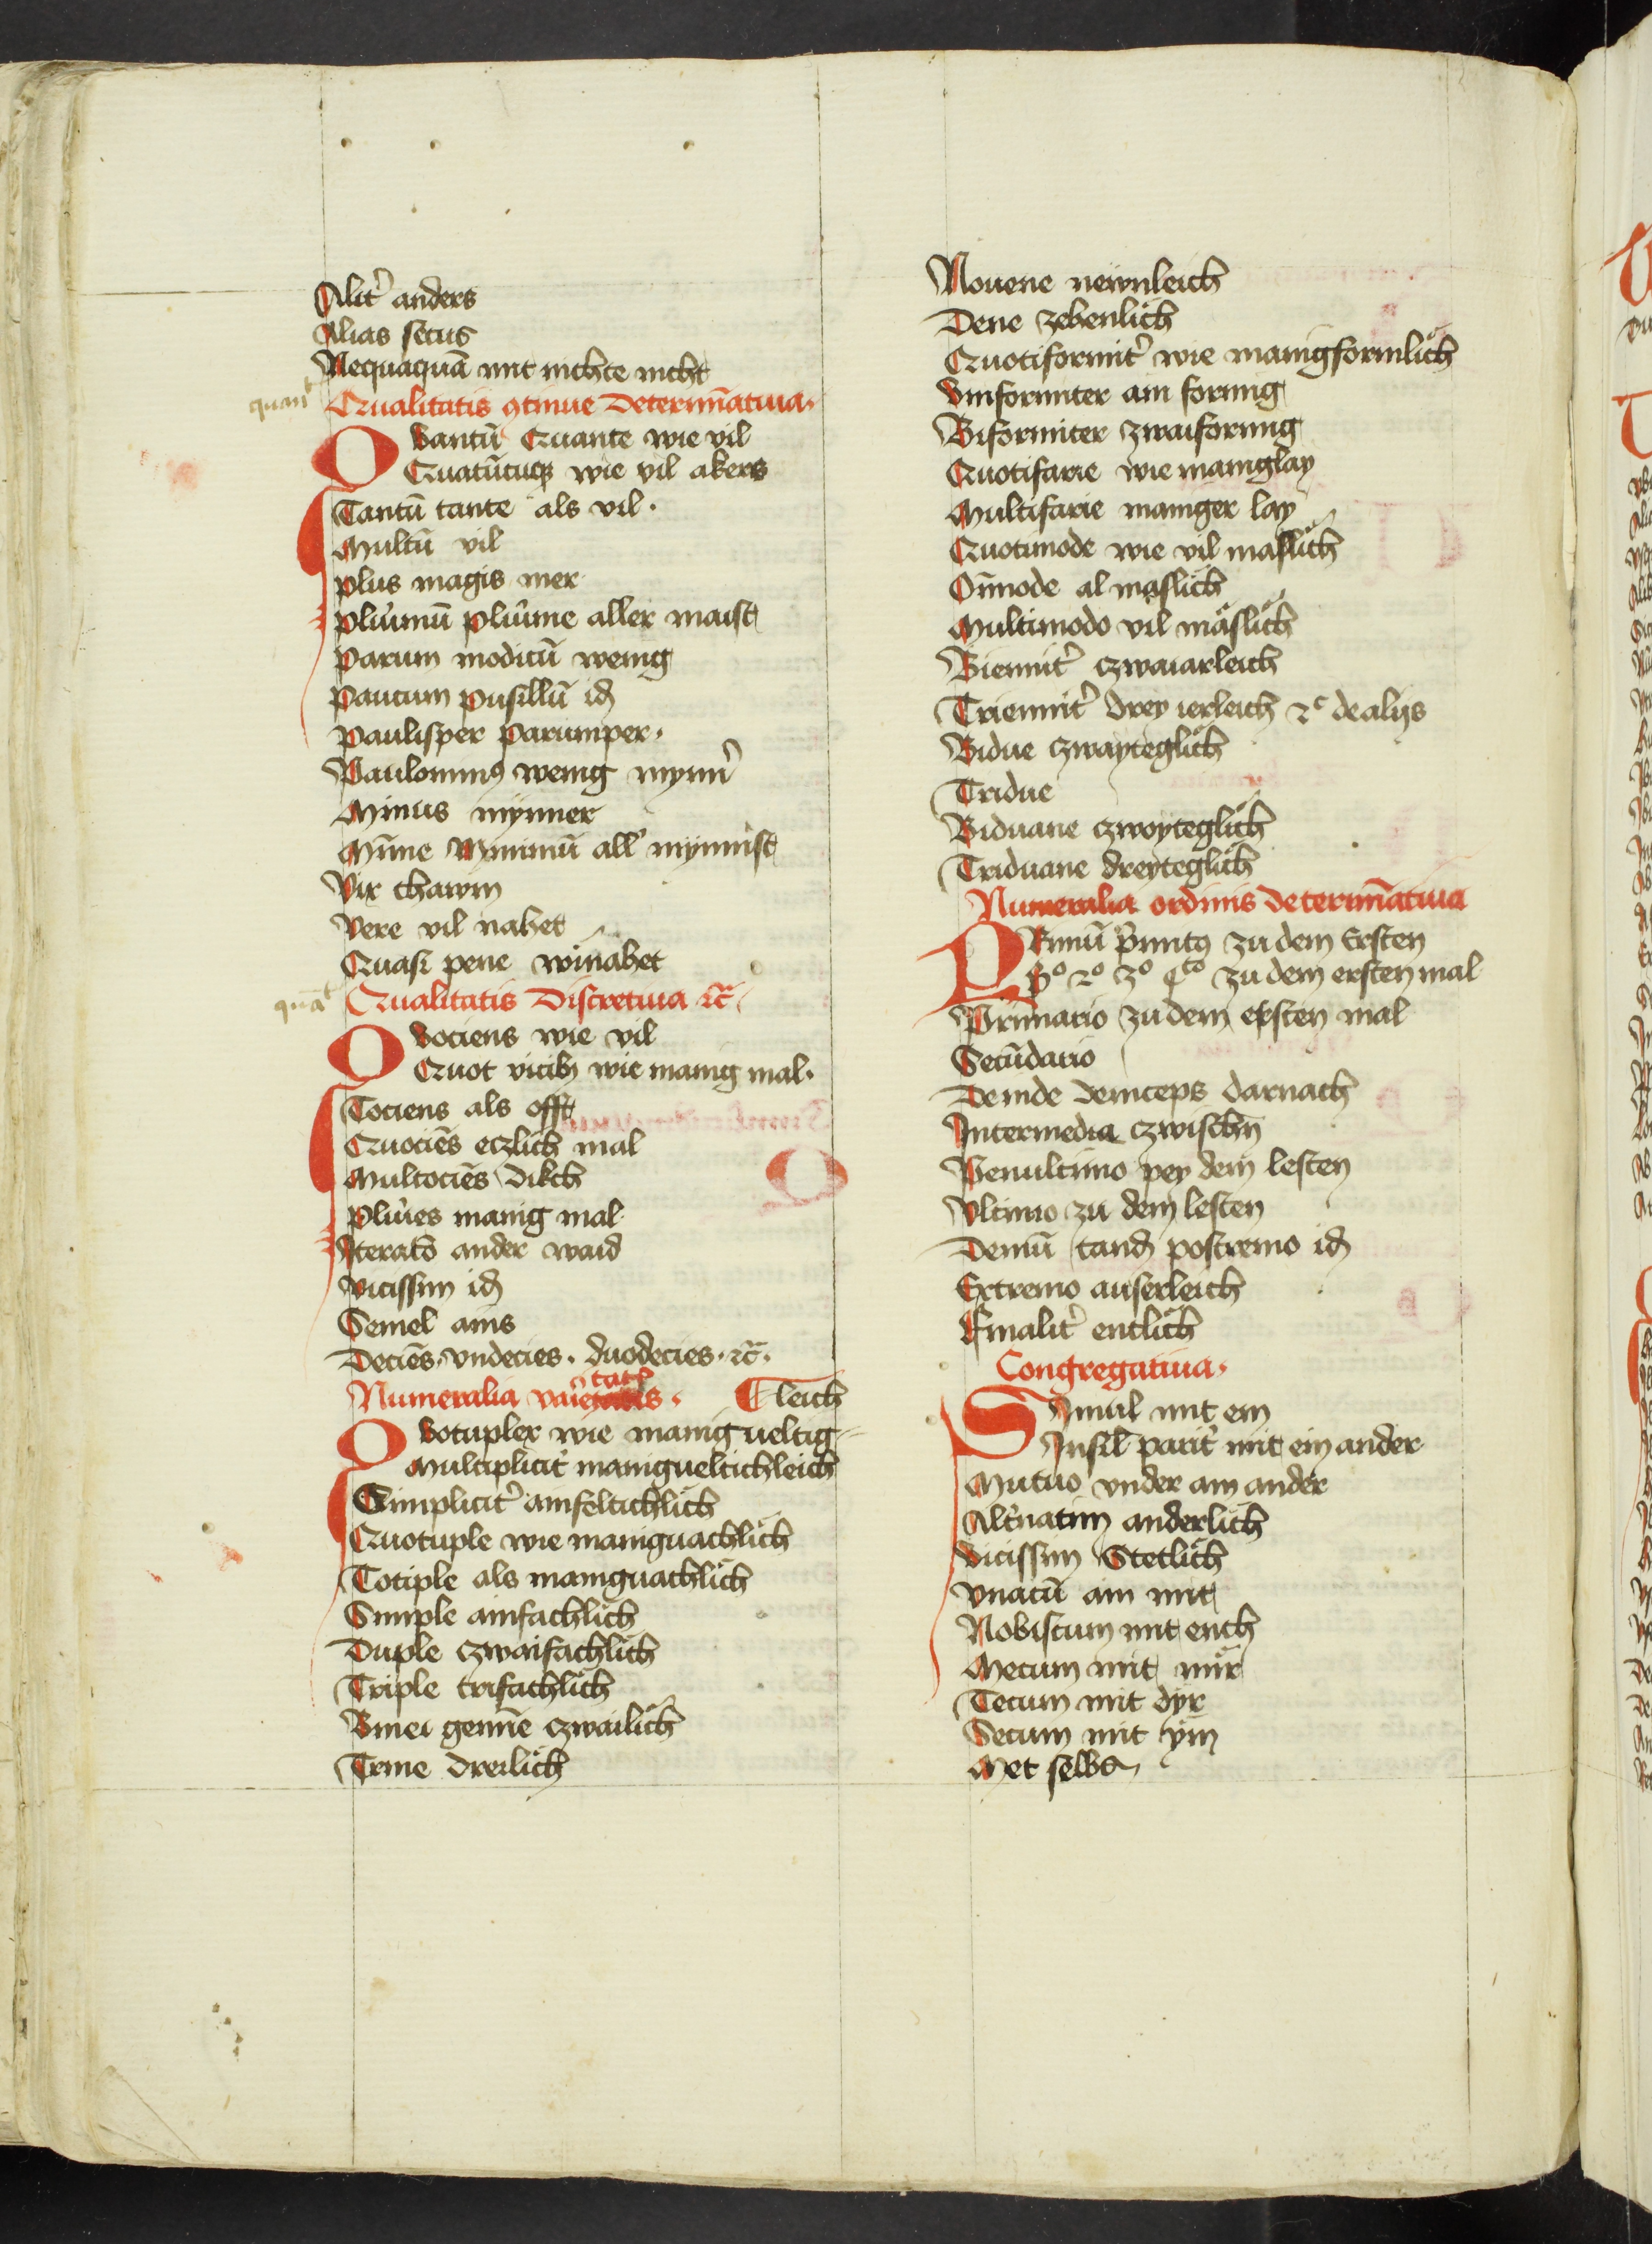 Alit͛ anders
Alias secus
Nequaquā mit nichte nicht
quant Qualitatis ꝯtinue determīatiua·
QVantū Quante wie vil
Quātūcūqꝫ wie vil akers
Tantū tante als vil·
Multū vil
plus magis mer
plur͛imū plur͛ime aller maist
Parum modicū wenig
Paucum pusillū id̄
Paulisper parumper·
Paulominꝰ wenig mynn͛
Minus mynner
Mīme Minimū all͛ mynnist
Vix chawm
Vere vil nahet
Quasi pene winahet
quāt Qualitatis discretiua ⁊c̄
QVociens wie vil
Quot vicibꝫ wie manig mal·
Tociens als offt
Quociēs eczlich mal
Multociēs dikch
plur͛ies manig mal
Iterato ander waid
vicissim id̄
Semel ains
Deciēs· vndecies· duodecies· ⁊c̄·
Numeralia · ¶ leich
QVotuplex wie manigueltig
Multiplicit͛ manigueltichleich
Simplicit͛ ainfeltichlich
Quotuple wie maniguachlich
Totiple als maniguachlich
Simple ainfachlich
Duple czwaifachlich
Triple trifachlich
Binei czwailich
Trine dreilich
Nouene newnleich
Dene zehenlich
Quotiformit͛ wie manigformlich
Vniformiter ain formig
Biformiter zwaiformig
Quotifarie wie maniglay
Multifarie maniger lay
Quotimode wie vil maslich
Oīmode al maslich
Multimodo vil mäslich
Biennit͛ czwaiarleich
Triennit͛ drey ierleich ⁊c de alijs
Bidue czwayteglich
Tridue
Biduane czwoyteglich
Triduane dreyteglich
Numeralia ordinis determīatiua
PRimū p̄mitꝰ zu dem Ersten
p̄o 2o 3o 4to zu dem ersten mal
Primario zu dem ersten mal
Secūdario
Deinde deinceps darnach
Intermedia czwischn̄
Penultimo pey dem lesten
Vltimo zu dem lesten
Demū tand̄ postremo id̄
Extremo auserleich
Finalit͛ entlich
Congregatiua·
SImul mit ein
Insil̄ parit͛ mit ein ander
Mutuo vnder ain ander
Alt͛natim anderlich
vicissim Stetlich
vnacū ain mit
Nobiscum mit euch
Mecum mit mir
Tecum mit dyr
Secum mit ym
Met selbs